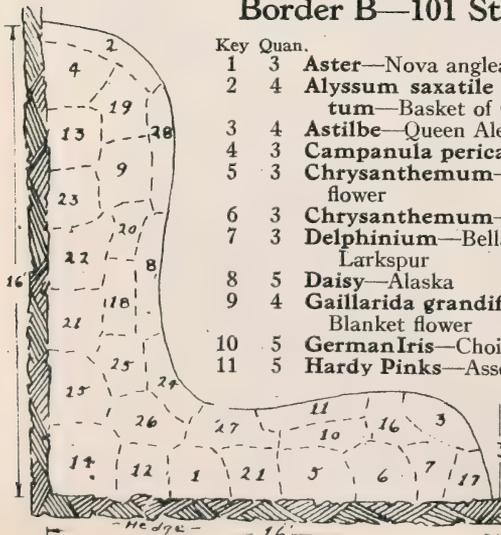 Border B—101 St
Key Quan.
1 3 Aster—Nova anglea
2 4 Alyssum saxatile
tum—Basket of
3 4 Astilbe—Queen Ale
4 3 Campanula perica
5 3 Chrysanthemum—
flower
6 3 Chrysanthemum—
7 3 Delphinium—Bell
Larkspur
8 5 Daisy—Alaska
9 4 Gaillarida grandif
Blanket flower
10 5 German Iris—Choi
11 5 Hardy Pinks—Asso
2
4
19
13
28
9
23
20
22
8
16'
18
21
25
24
25
11
26
27
10
16
3
14
12
1
21
5
6
7
17
-Hedge-
16'